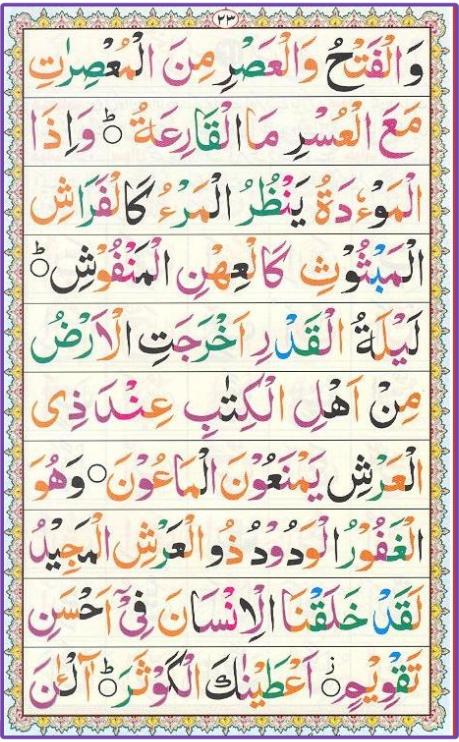 ۲۳
وَالْفَتْحُ وَالْعَصْرِ مِنَ الْمُعْصِرٰتِ
مَعَ الْعُسْرِ مَاالْقَارِعَةُ ؕ وَاِذَا
الْمَوْءٗدَةُ يَنْظُرُ الْمَرْءُ كَالْفَرَاشِ
الْمَبْثُوْثِ كَالْعِهْنِ الْمَنْفُوْشِ ؕ
لَيْلَةُ الْقَدْرِ اَخْرَجَتِ الْاَرْضُ
مِنْ اَهْلِ الْكِتٰبِ عِنْدَ ذِى
الْعَرْشِ يَمْنَعُوْنَ الْمَاعُوْنَ ۝ وَهُوَ
الْغَفُوْرُ الْوَدُوْدُ ذُو الْعَرْشِ الْمَجِيْدُ
لَقَدْ خَلَقْنَا الْاِنْسَانَ فِىْٓ اَحْسَنِ
تَقْوِيْمٍ ۝ۙ اَعْطَيْنٰكَ الْكَوْثَرَ ؕ آلْـٰٔنَ